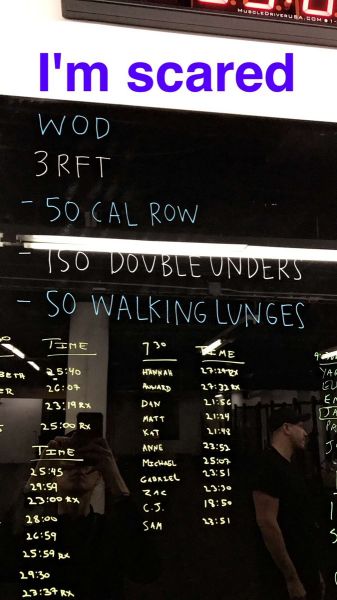 MUSCLEDRIVERUSA.COM
I'm scared
WOD
3 RFT
- 50 CAL ROW
- 150 DOUBLE UNDERS
- 50 WALKING LUNGES
TIME
25:40
26:07
23:19 RX
25:00 RX
TIME
25:45
29:59
23:00 RX
28:00
26:59
25:59 RX
29:30
23:37 RX
730 TIME
HANNAH 27:29 RX
27:32 RX
DAN 21:56
MATT 21:24
KAT 21:48
ANNE 23:52
MICHAEL 25:07
GABRIEL 23:51
ZAC 23:30
C.J. 18:50
SAM 23:51